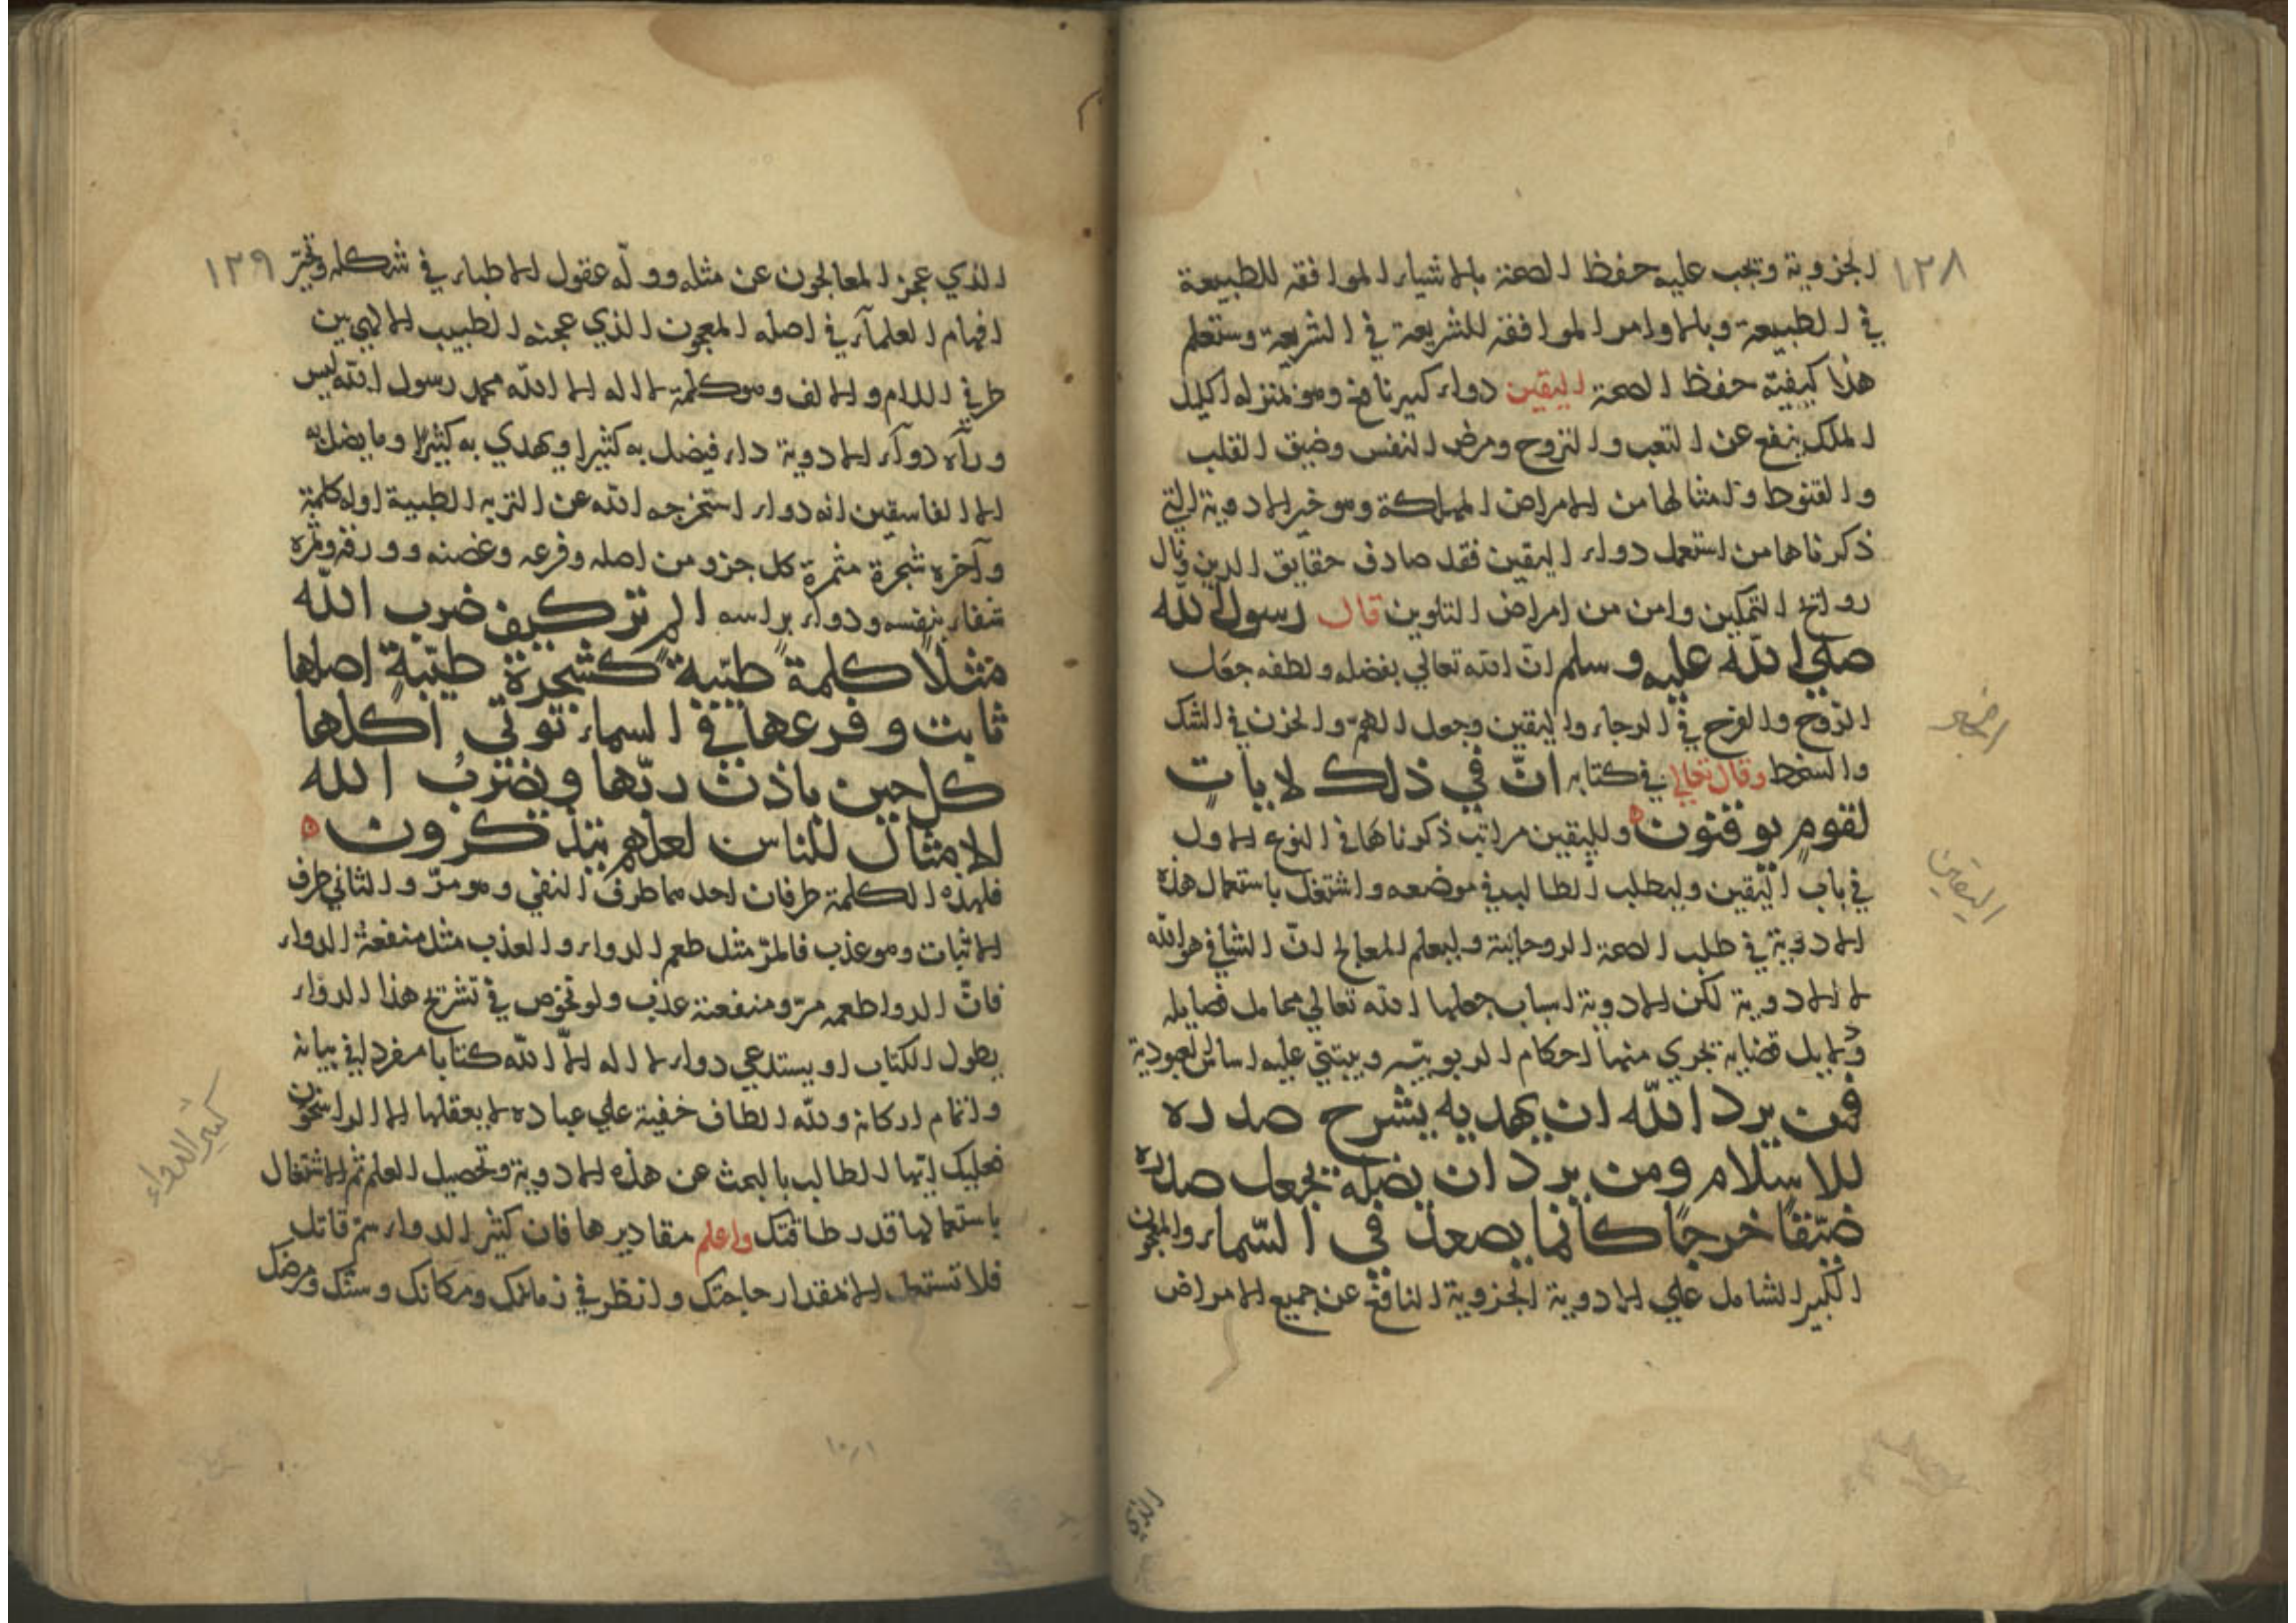 ١٢٨
الجزوية وتجب عليه حفظ الصحة بالاشياء الموافقة للطبيعة
في الطبيعة وبالاوامر الموافقة للشريعة في الشريعة وستعلم
هذا كيفية حفظ الصحة اليقين دواء كبير نافع وهو بمنزله اكليل
الملك ينفع عن التعب والتروح ومرض النفس وضيق القلب
والقنوط وامثالها من الامراض المهلكة وهو خير الادوية التي
ذكرناها من استعمل دواء اليقين فقد صادف حقايق الدين ونال
روايح التمكين وامن من امراض التلوين قال رسول الله
صلي الله عليه وسلم ان الله تعالي بفضله ولطفه جعل
الروح والفرح في الرجاء واليقين وجعل الهم والحزن في الشك
والسخط وقال تعالي في كتابه ان في ذلك لايات
لقوم يوقنون ولليقين مراتب ذكرناها في النوع الاول
في باب اليقين وليطلب الطالب في موضعه واشتغل باستعمال هذه
الادوية في طلب الصحة الروحانية وليعلم المعالج ان الشافي هو الله
لا الادوية لكن الادوية اسباب جعلها الله تعالي محامل فضايله
ودلايل قضاياه تجري منها احكام الربوبية ويبتني عليه اساس العبودية
فمن يرد الله ان يهديه يشرح صدره
للاسلام ومن يرد ان يضله يجعل صدره
ضيقا حرجا كانما يصعد في السماء والمعجون
الكبير الشامل علي الادوية الجزوية النافع عن جميع الامراض
اليقين
١٢٩
الذي عجز المعالجون عن مثله ووله عقول الاطباء في شكله وتحير
افهام العلماء في اصله المعجون الذي عجنه الطبيب الالهي بين
طرفي اللام والالف وهو كلمة لا اله الا الله محمد رسول الله ليس
ورآه دوآء الادوية داء فيضل به كثيرا ويهدي به كثيرا وما يضل به
الا الفاسقين انه دواء استخرجه الله عن التربه الطيبة اوله كلمة
وآخره شجرة مثمرة كل جزو من اصله وفرعه وغصنه وورقه وثمره
شفاء بنفسه ودواء براسه الم تر كيف ضرب الله
مثلا كلمة طيبة كشجرة طيبة اصلها
ثابت وفرعها في السماء توتي اكلها
كل حين باذن ربها ويضرب الله
الامثال للناس لعلهم يتذكرون
فلهذه الكلمة طرفان احدهما طرف النفي وهو مر والثاني طرف
الاثبات وهو عذب فالمر مثل طعم الدواء والعذب مثل منفعة الدواء
فان الدوا طعمه مر ومنفعته عذب ولو نخوض في تشريح هذا الدواء
يطول الكتاب او يستدعي دواء لا اله الا الله كتابا مفردا في بيانه
واتمام اركانه ولله الطاف خفية علي عباده لا يعقلها الا الراسخون
فعليك ايها الطالب بالبحث عن هذه الادوية وتحصيل العلم ثم الاشتغال
باستعمالها قدر طاقتك واعلم مقاديرها فان كثير الدواء سم قاتل
فلا تستعمل الا بمقدار حاجتك وانظر في زمانك ومكانك وسنك ومرضك
كثير الدواء